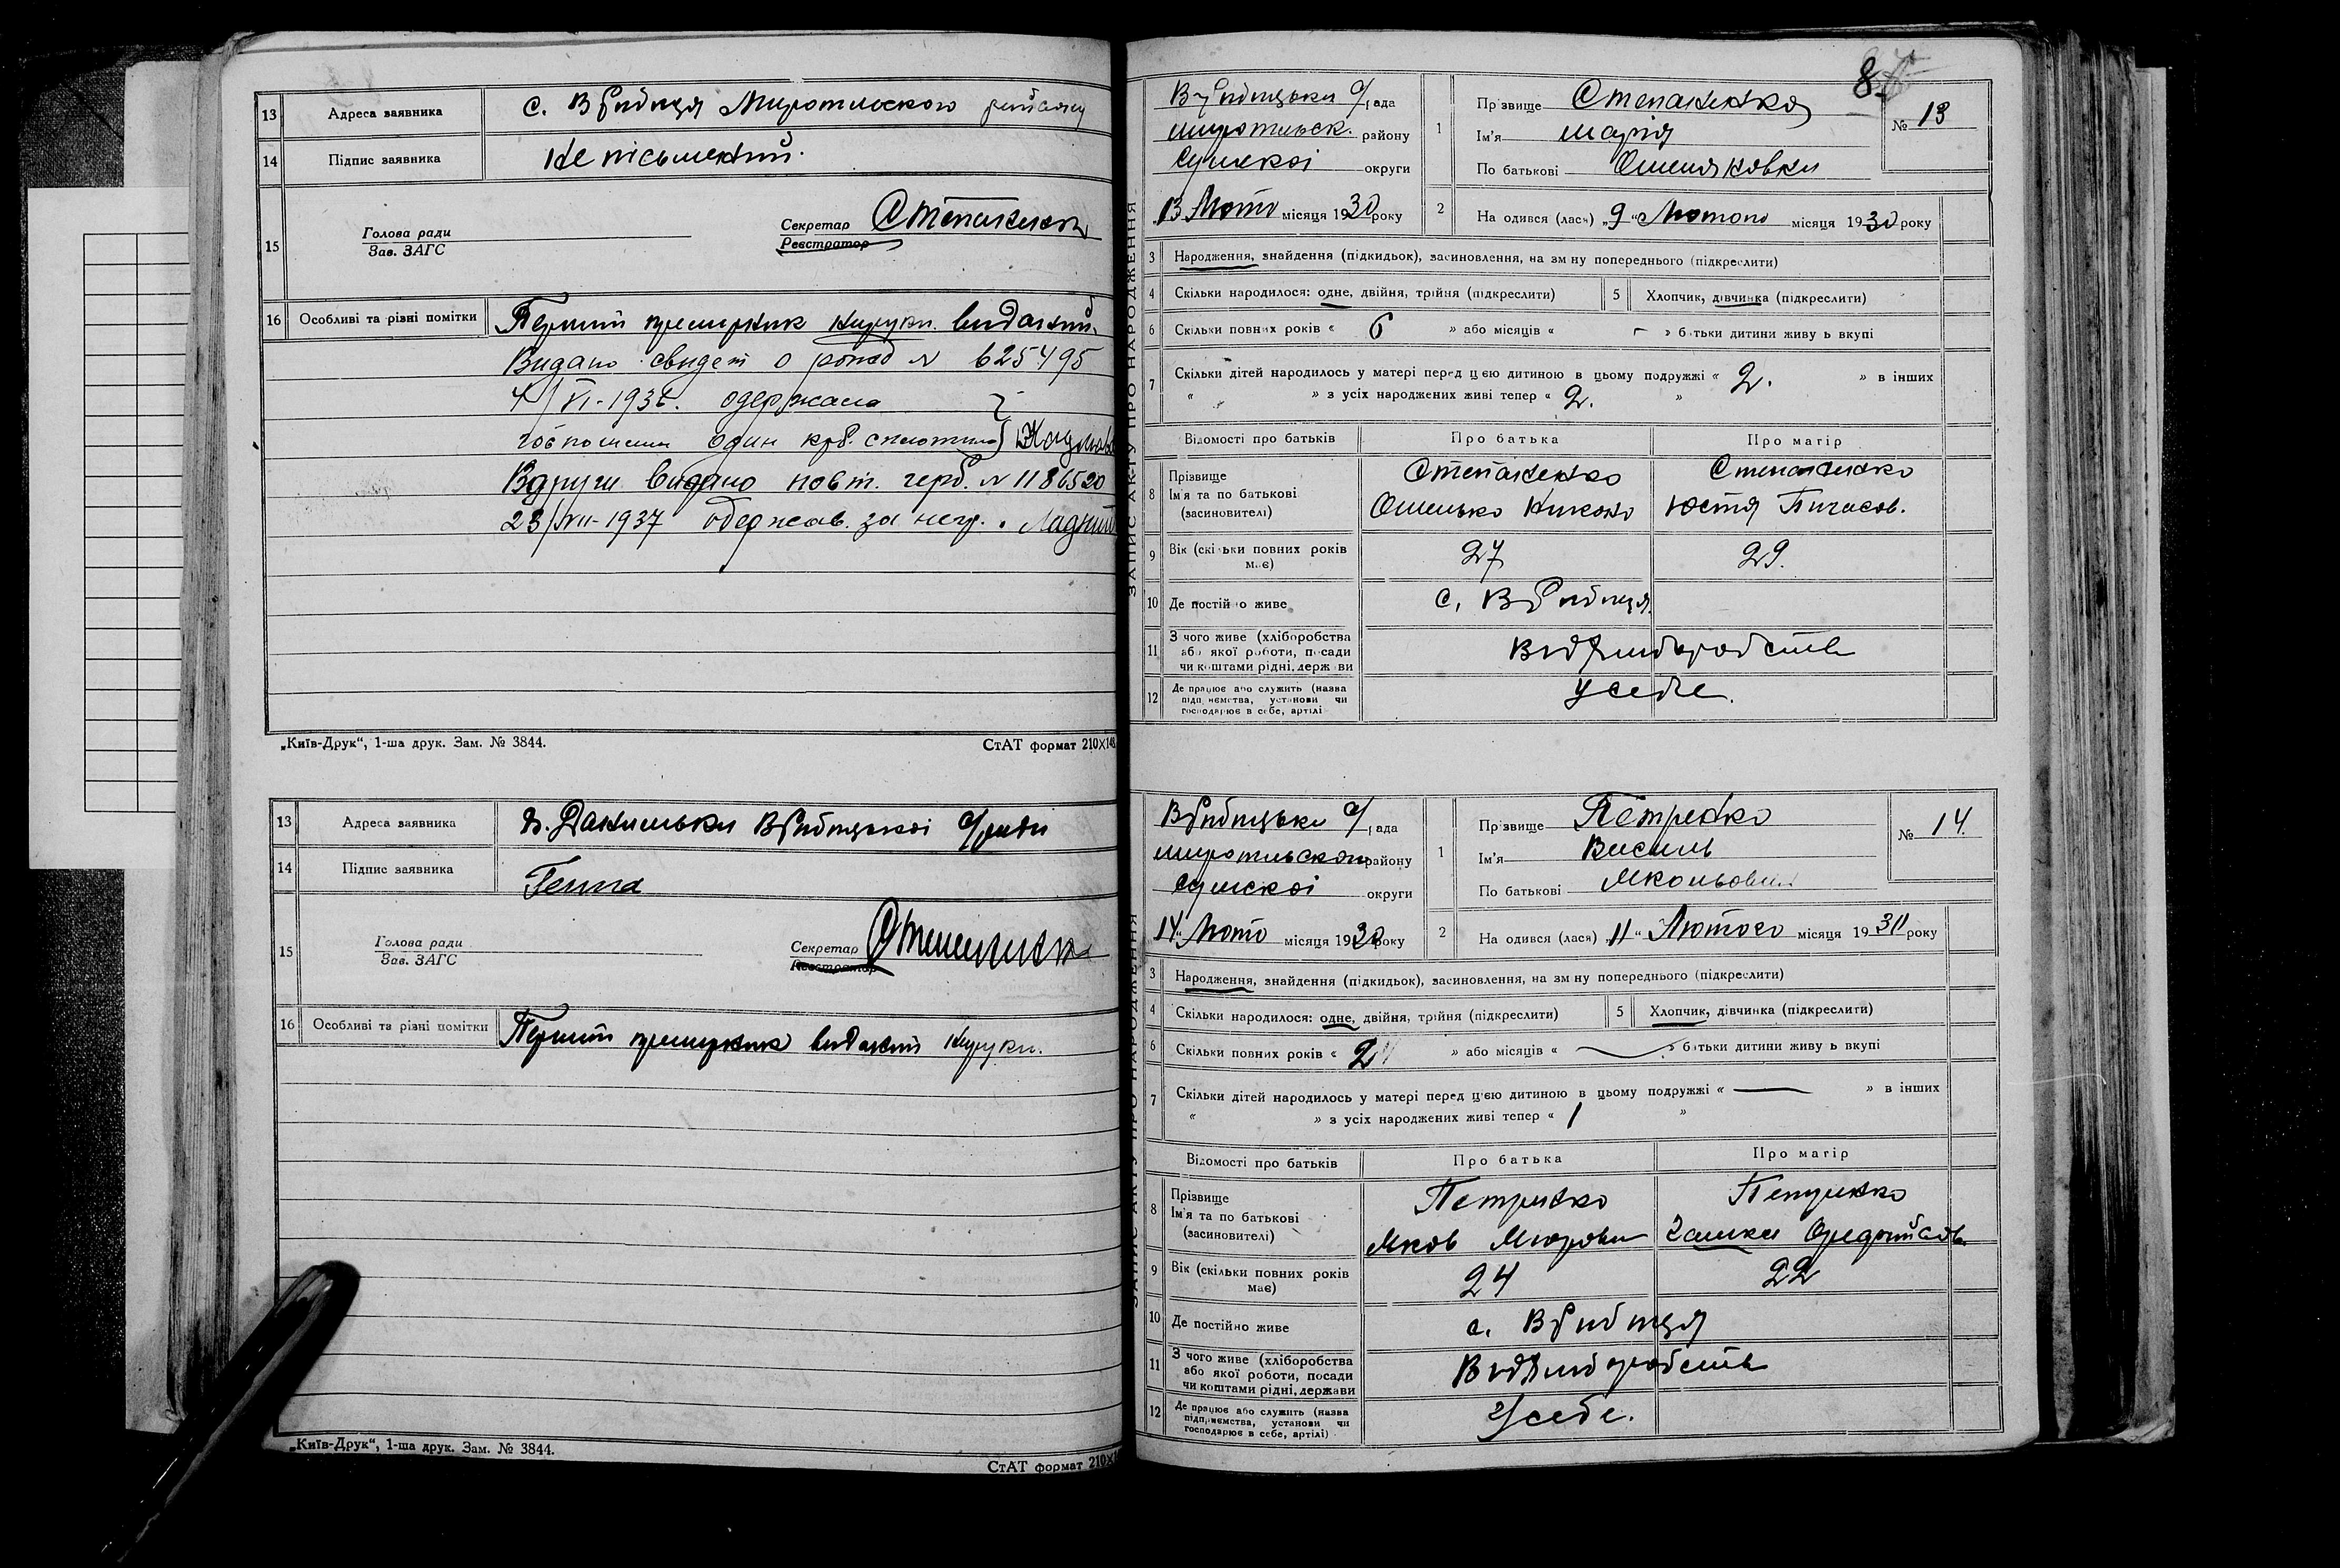 13 Адреса заявника с. Миропільського району
14 Підпис заявника Не письменний.
15 Голова ради
Зав. ЗАГС
Секретар Степаненко
Реєстратор
16 Особливі та різні помітки Перший примірник видани
Видано свидет о рожд N 625495
4/VI-193 одержала
один крб. сплотила
Вдруги видано повт. герб. N 1186520
23/VII-1937 одержав. за негр. Ладний
„Київ-Друк“, 1-ша друк. Зам. № 3844.
СтАТ формат 210×148
13 Адреса заявника х. с/ради
14 Підпис заявника
15 Голова ради
Зав. ЗАГС
Секретар
Реєстратор
16 Особливі та різні помітки Перший примірник виданий
„Київ-Друк“, 1-ша друк. Зам. № 3844.
СтАТ формат 210×
8
ЗАПИС АКТУ ПРО НАРОДЖЕННЯ
с/рада
Миропільск. району
Сумскоі округи
13 Люто місяця 1930 року
1 Прізвище Степаненко
Ім'я Марія
По батькові
№ 13
2 Народився (лася) „9“ Лютого місяця 1930 року
3 Народження, знайдення (підкидьок), засиновлення, на зміну попереднього (підкреслити)
4 Скільки народилося: одне, двійня, трійня (підкреслити)
5 Хлопчик, дівчинка (підкреслити)
6 Скільки повних років « 6 » або місяців « – » батьки дитини живуть вкупі
7 Скільки дітей народилось у матері перед цією дитиною в цьому подружжі « 2. » в інших
« » з усіх народжених живі тепер « 2. »
Відомості про батьків Про батька Про матір
8 Прізвище Степаненко Степаненко
Ім'я та по батькові Юстя
(засиновителі)
9 Вік (скільки повних років має) 27 29.
10 Де постійно живе с.
11 З чого живе (хліборобства
або якої роботи, посади
чи коштами рідні, держави
12 Де працює або служить (назва
підприємства, установи чи
господарює в себе, артілі
У себе.
с/рада
Миропільского району
Сумскоі округи
„14“ Люто місяця 1930 року
1 Прізвище Петренко
Ім'я Василь
По батькові
№ 14.
2 Народився (лася) „11“ Лютого місяця 1930 року
3 Народження, знайдення (підкидьок), засиновлення, на зміну попереднього (підкреслити)
4 Скільки народилося: одне, двійня, трійня (підкреслити)
5 Хлопчик, дівчинка (підкреслити)
6 Скільки повних років « 2 » або місяців « — » батьки дитини живуть вкупі
7 Скільки дітей народилось у матері перед цією дитиною в цьому подружжі « — » в інших
« » з усіх народжених живі тепер « 1 »
Відомості про батьків Про батька Про матір
8 Прізвище Петренко Петренко
Ім'я та по батькові Яков
(засиновителі)
9 Вік (скільки повних років має) 24 22
10 Де постійно живе с.
11 З чого живе (хліборобства
або якої роботи, посади
чи коштами рідні, держави
12 Де працює або служить (назва
підприємства, установи чи
господарює в себе, артілі)
У себе.